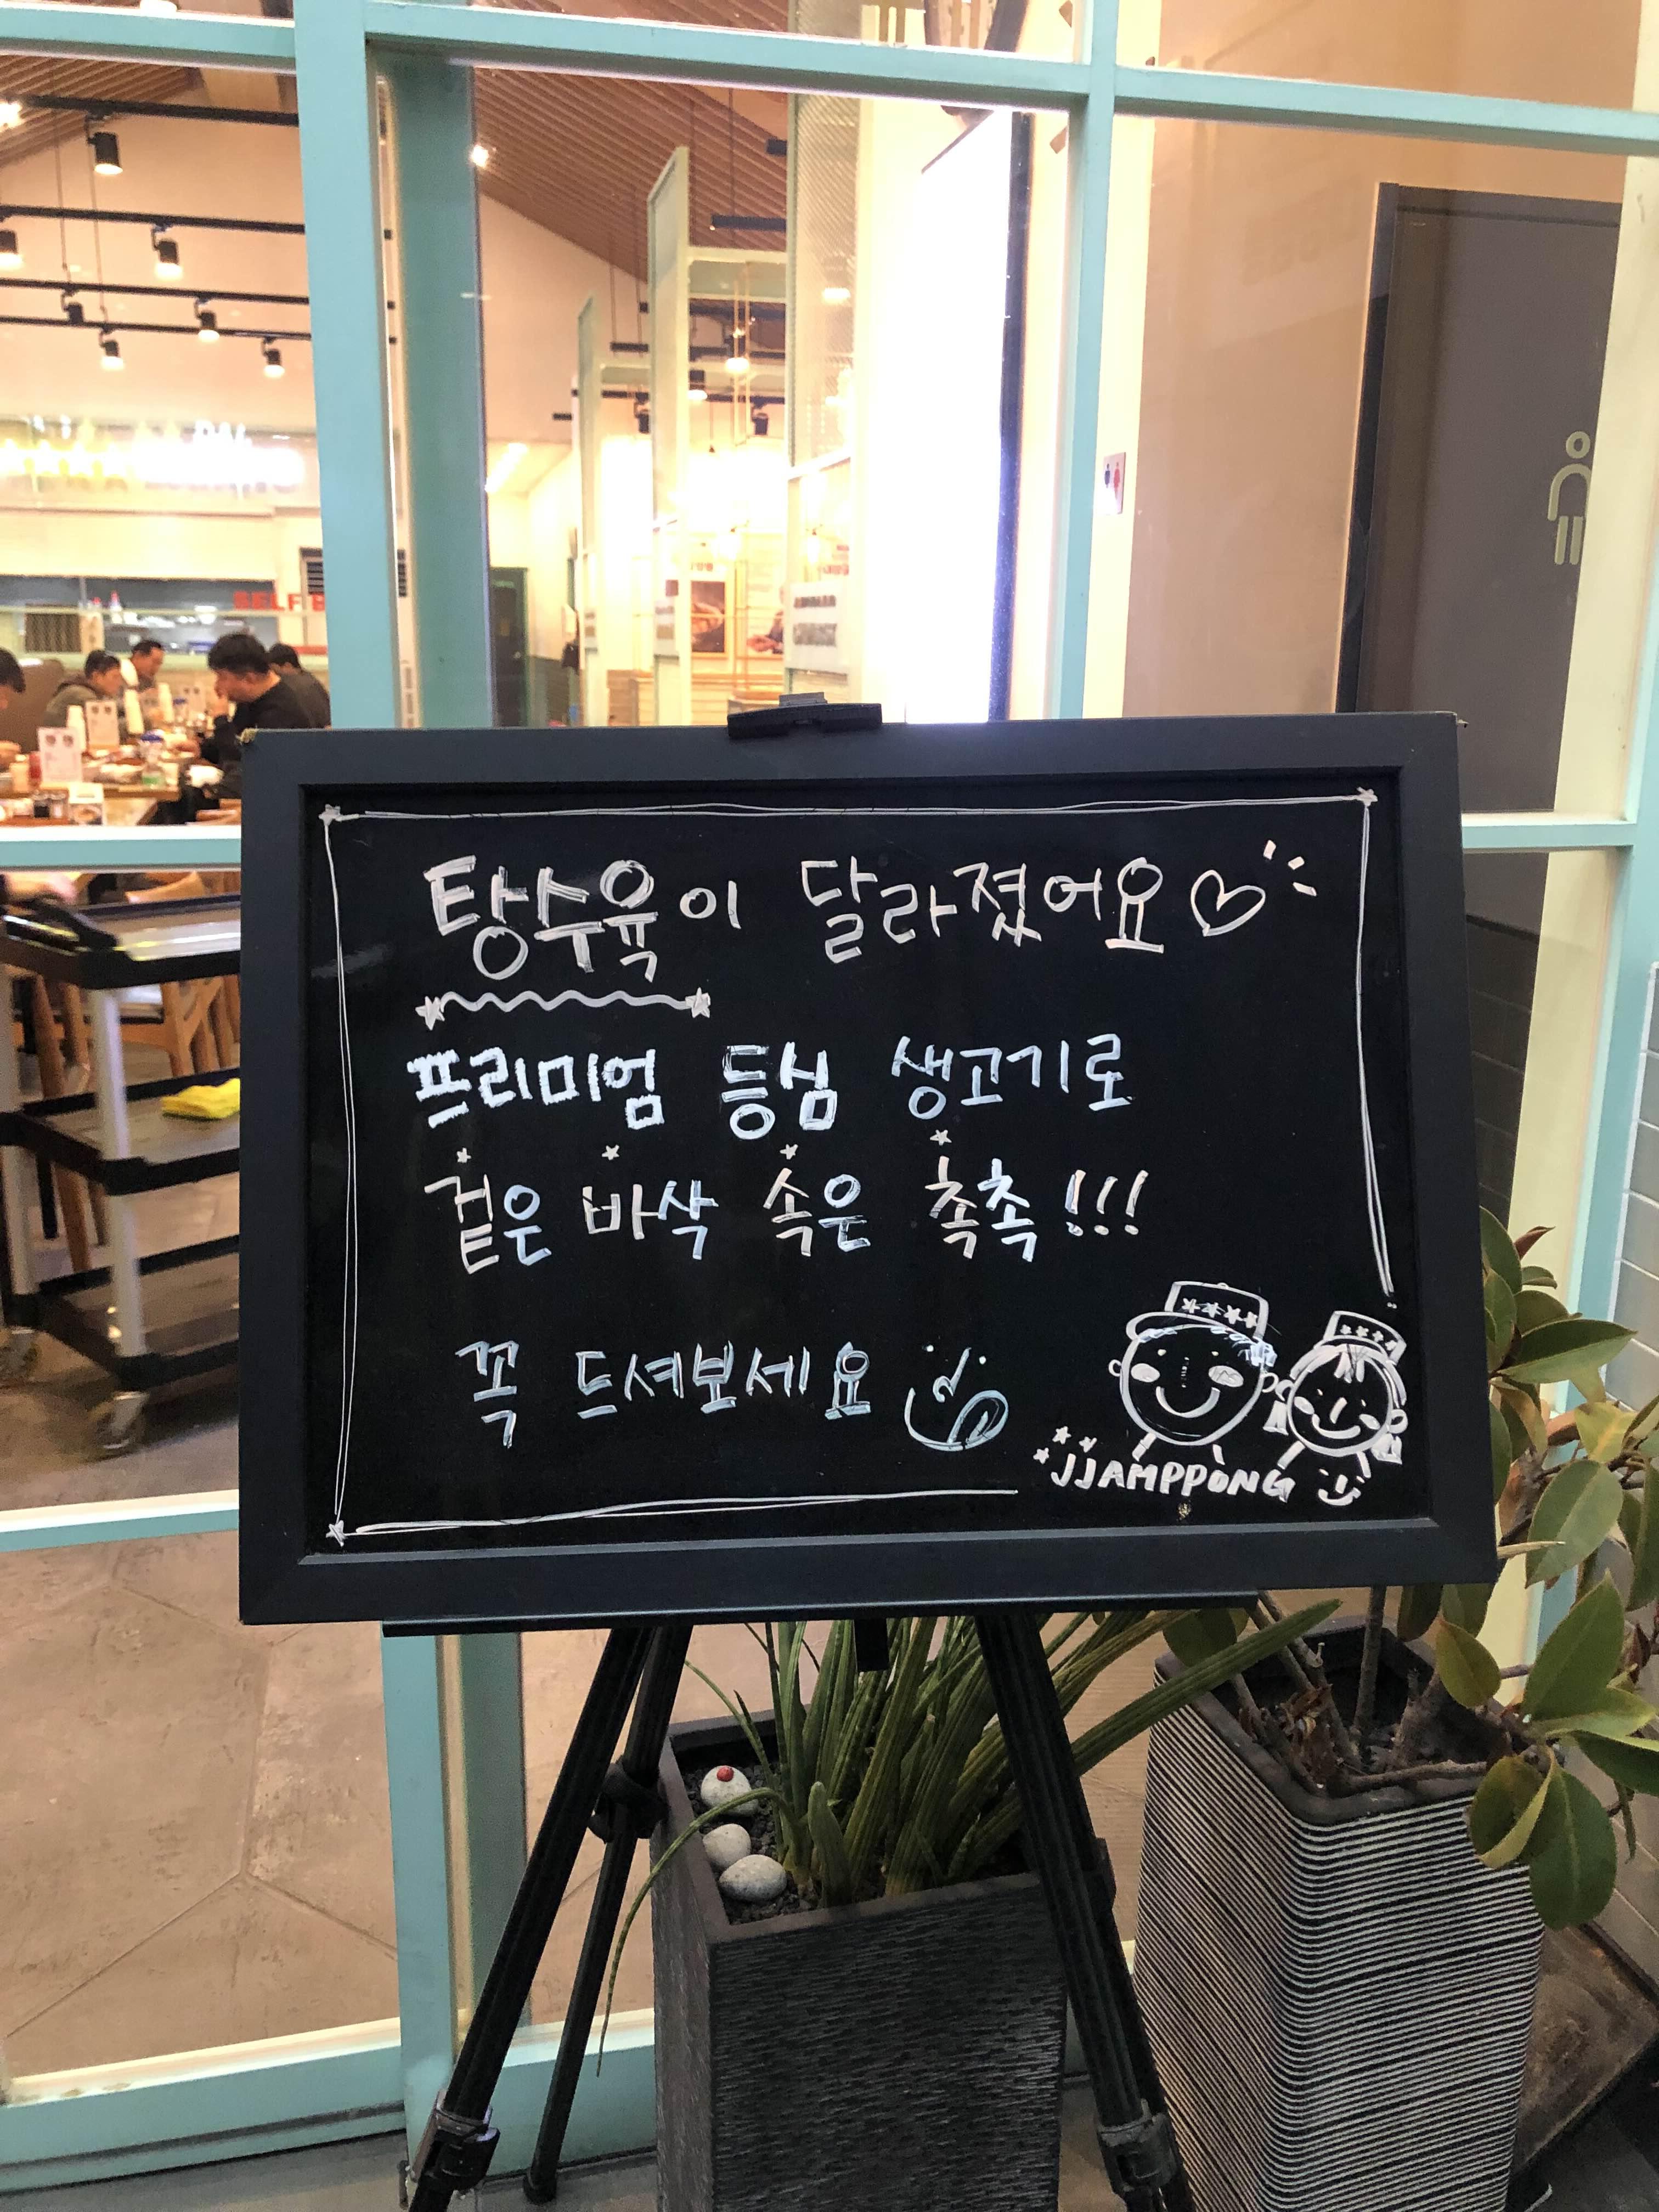 탕수육이 달라졌어요
프리미엄 등심 생고기로
겉은 바삭 속은 촉촉!!!
꼭 드셔보세요
JJAMPPONG
SELF B